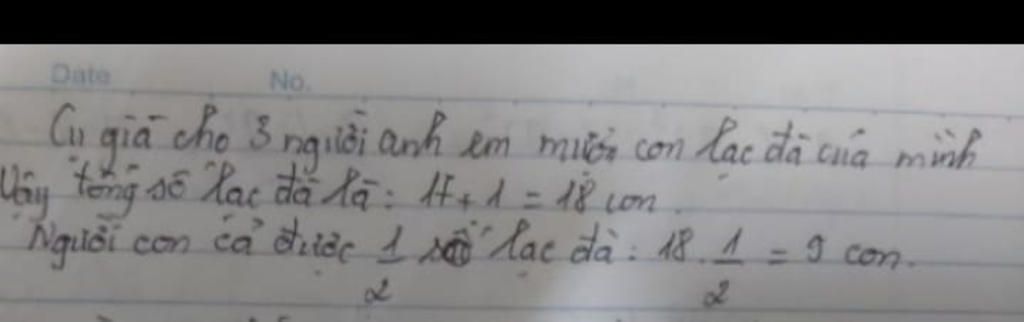 Date No.
Cụ già cho 3 người anh em mượn con lạc đà của mình
Vậy tổng số lạc đà là: 17 + 1 = 18 con.
Người con cả được 1/2 số lạc đà: 18 . 1/2 = 9 con.